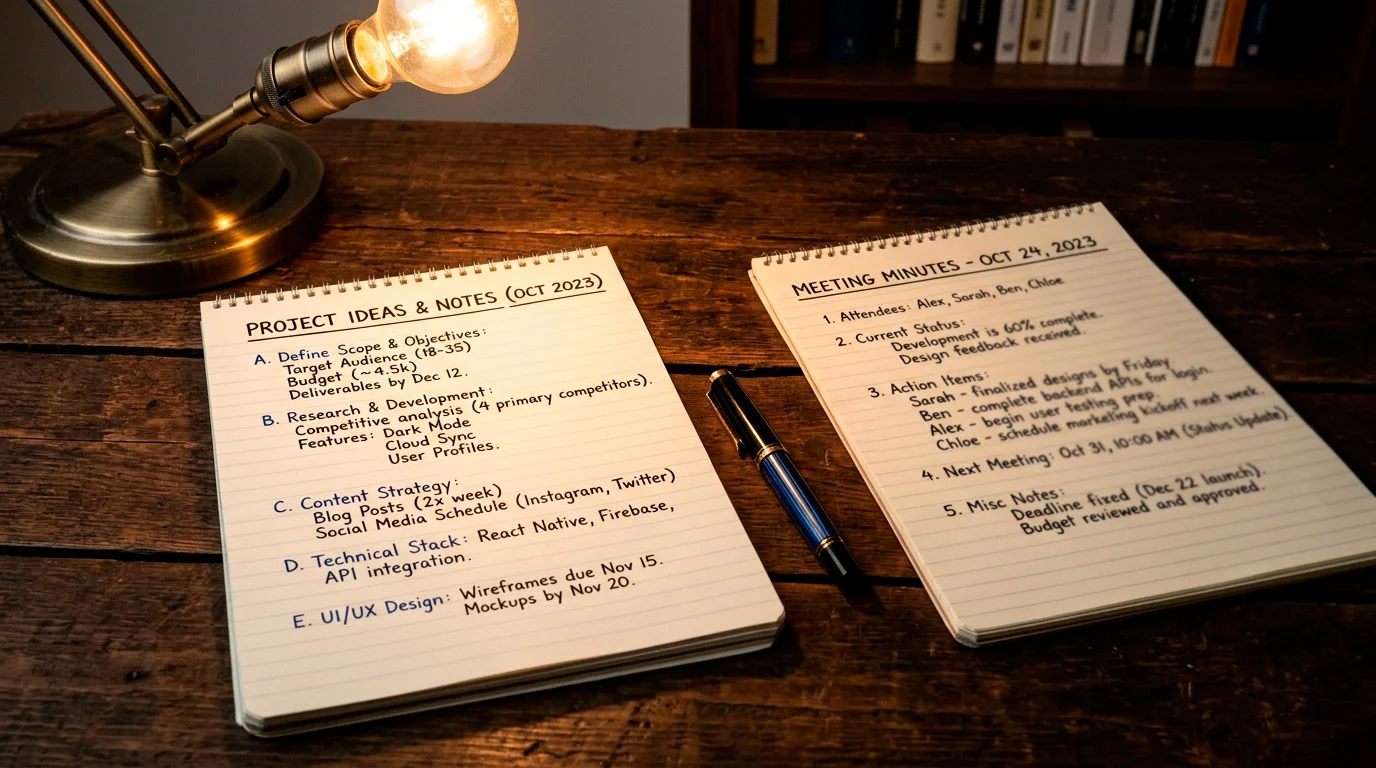 PROJECT IDEAS & NOTES (OCT 2023)
A. Define Scope & Objectives:
Target Audience (18-35)
Budget (~4.5k)
Deliverables by Dec 12.
B. Research & Development:
Competitive analysis (4 primary competitors).
Features: Dark Mode
Cloud Sync
User Profiles.
C. Content Strategy:
Blog Posts (2x week)
Social Media Schedule (Instagram, Twitter)
D. Technical Stack: React Native, Firebase,
API integration.
E. UI/UX Design: Wireframes due Nov 15.
Mockups by Nov 20.
MEETING MINUTES - OCT 24, 2023
1. Attendees: Alex, Sarah, Ben, Chloe
2. Current Status:
Development is 60% complete.
Design feedback received.
3. Action Items:
Sarah - finalized designs by Friday.
Ben - complete backend APIs for login.
Alex - begin user testing prep.
Chloe - schedule marketing kickoff next week.
4. Next Meeting: Oct 31, 10:00 AM (Status Update)
5. Misc Notes:
Deadline fixed (Dec 22 launch).
Budget reviewed and approved.